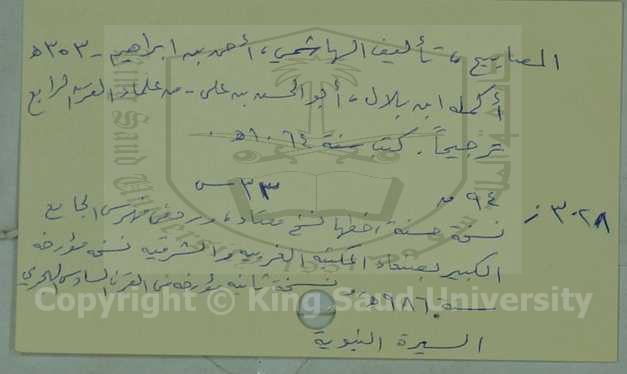 المصابيح، تأليف الهاشمي، أحمد بن ابراهيم - ٣٥٣هـ
أكمله ابن بلال، أبو الحسن بن علي - من علماء القرن الرابع
ترجيحاً. كتب سنة ١٠٦٤هـ.
٩٤ ق ٣٣ س
٣٠٢٨ ز
نسخة حسنة، خطها نسخ معتاد، ورد في فهرس الجامع
الكبير بصنعاء المكتبة الغربية والشرقية نسخة مؤرخة
سنة ٩٨٦هـ ونسخة ثانية مؤرخة في القرن السادس الهجري
السيرة النبوية
Copyright © King Saud University